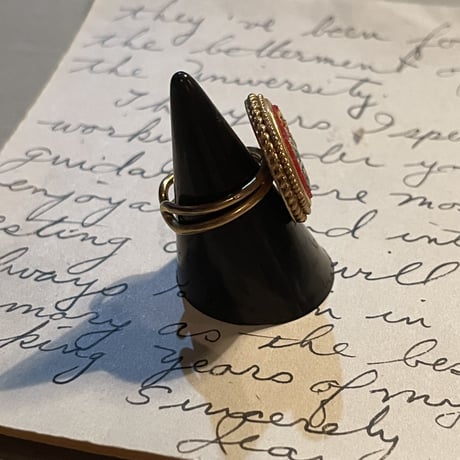 they've been fo
the betterment o
the University.
The years I spe
work under yo
guida were mo
enjoya and int
esting a will
always in
mory as the bes
king years of my
Sincerely
Jea